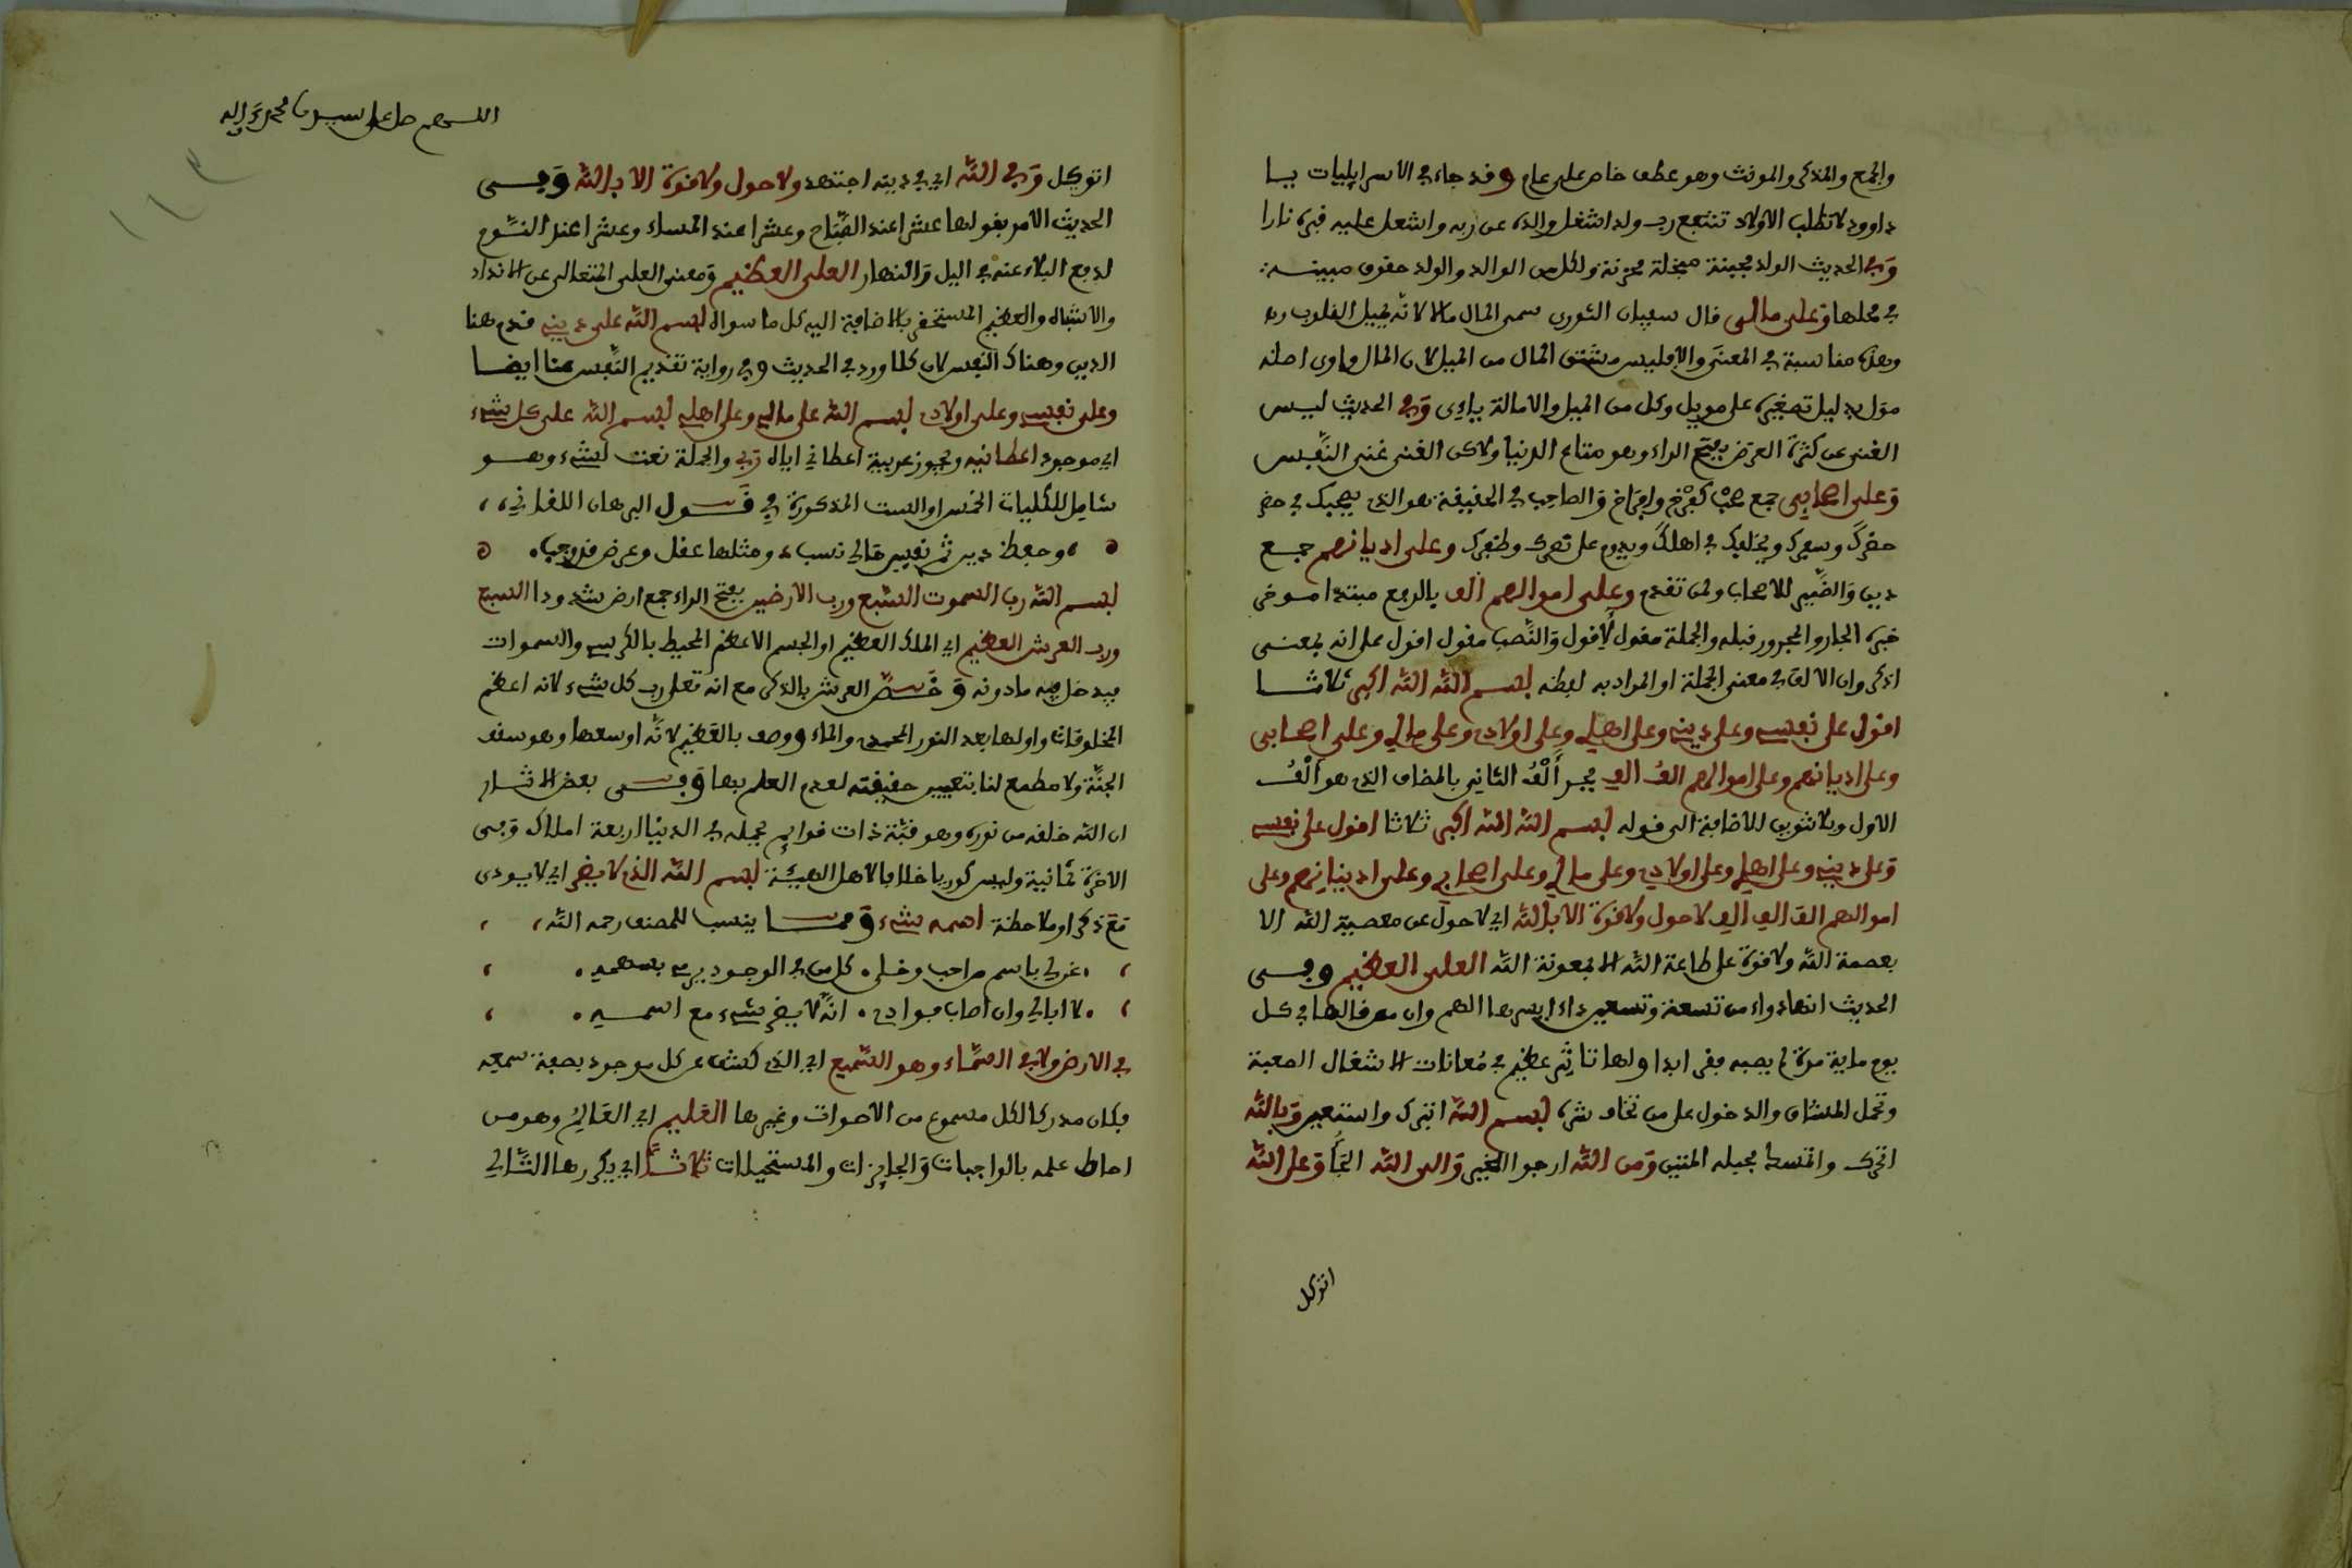 والجمع والمذكر والمونث وهو عطف خاص على عام وقد جاء في الاسراييليات يا
داوود لا تطلب الاولاد تنتفع رب ولد اشغل والده عن ربه واشعل عليه قبره نارا
وفي الحديث الولد مجبنة مبخلة محزنة ولكل من الوالد والولد حقوق مبينة
في محلها وعلى مالي قال سفيان الثوري سمي المال مالا لانه يميل القلوب
وهذه مناسبة في المعنى والا فليس مشتق المال من الميل لان المال واوي اصله
مول بدليل تصغيره على مويل وكل من الميل والامالة ياءي وفي الحديث ليس
الغنى عن كثرة العرض بفتح الراء وهو متاع الدنيا ولاكن الغنى غنى النفس
وعلى اصحابي جمع صحب كفرخ وافراخ والصاحب في الحقيقة هو الذي يصحبك في
حضرك وسفرك ويخلفك في اهلك ويدوم على وعلى اديانهم جمع
دين والضمير للاصحاب ولمن تقدم وعلى اموالهم الف بالرفع مبتدا موخر
خبره الجار والمجرور قبله والجملة مقول لاقول والنصب مفعول اقول على انه بمعنى
اذكر وان الالف في معنى الجملة او المراد به لفظه بسم الله الله اكبر ثلاثا
اقول على نفسي وعلى ديني وعلى اهلي وعلى اولادي وعلى مالي وعلى اصحابي
وعلى اديانهم وعلى اموالهم الف الف بجر ألف الثاني بالمضاف الذي هو ألف
الاول وبلا تنوين للاضافة الى قوله بسم الله الله اكبر ثلاثا اقول على نفسي
وعلى ديني وعلى اهلي وعلى اولادي وعلى مالي وعلى اصحابي وعلى اديانهم وعلى
اموالهم الف الف الف لا حول ولا قوة الا بالله اي لا حول عن معصية الله الا
بعصمة الله ولا قوة على طاعة الله الا بمعونة الله العلي العظيم وفي
الحديث انها دواء من تسعة وتسعين داء ايسرها الهم وان من قالها في كل
يوم ماية مرة لم يصبه فقر ابدا ولها تاثير عظيم في معانات الاشغال الصعبة
وتحمل المشاق والدخول على من تخاف شره بسم الله اتبرك واستعين وبالله
اتحرك واتمسك بحبله المتين ومن الله ارجوا الخير والى الله التجأ وعلى الله
اتوكل
اللهم صل على سيدنا محمد وءاله
اتوكل وفي الله اي في دينه اجتهد ولا حول ولا قوة الا بالله وفي
الحديث الامر بقولها عشرا عند الصباح وعشرا عند المساء وعشرا عند النوم
لدفع البلاء عنه في اليل والنهار العلي العظيم ومعنى العلي المتعالي عن الانداد
والاشباه والعظيم المستحقر بالاضافة اليه كل ما سواه بسم الله على ديني قدم هنا
الدين وهناك النفس لان كلا ورد في الحديث وفي رواية تقديم النفس هنا ايضا
وعلى نفسي وعلى اولادي بسم الله على مالي وعلى اهلي بسم الله على كل شيء
اي موجود اعطانيه ويجوز عربية اعطاني اياه ربي والجملة نعت لشيء وهو
شامل للكليات الخمس او الست المذكورة في قول البرهان اللقاني
وحفظ دين ثم نفس مال نسب ومثلها عقل وعرض قد وجب
بسم الله رب السموت السبع ورب الارضين بفتح الراء جمع ارض السبع
ورب العرش العظيم اي الملك العظيم او الجسم الاعظم المحيط بالكرسي والسموات
فيدخل فيه ما دونه وخص العرش بالذكر مع انه تعالى رب كل شيء لانه اعظم
المخلوقات واولها بعد النور المحمدي والماء ووصف بالعظيم لانه اوسعها وهو سقف
الجنة ولا مطمع لنا بتعيين حقيقته لعدم العلم بها وفي بعض الاثار
ان الله خلقه من نوره وهو قبة ذات قوايم يحمله في الدنيا اربعة املاك وفي
الاخرة ثمانية وليس كوريا خلافا لاهل الهيئة بسم الله الذي لا يضر اي لا يوذي
مع ذكر او ملاحظة اسمه شيء ومما ينسب للمصنف رحمه الله
كل من في الوجود يرمي بسهمه
لا ابالي وان اصاب فوادي انه لا يضر شيء مع اسمه
في الارض ولا في السماء وهو السميع اي الذي كشف عن كل موجود بصفة سمعه
فكان مدركا لكل مسموع من الاصوات وغيرها العليم اي العالم وهو من
احاط علمه بالواجبات والجايزات والمستحيلات ثلاثا اي يكررها التالي